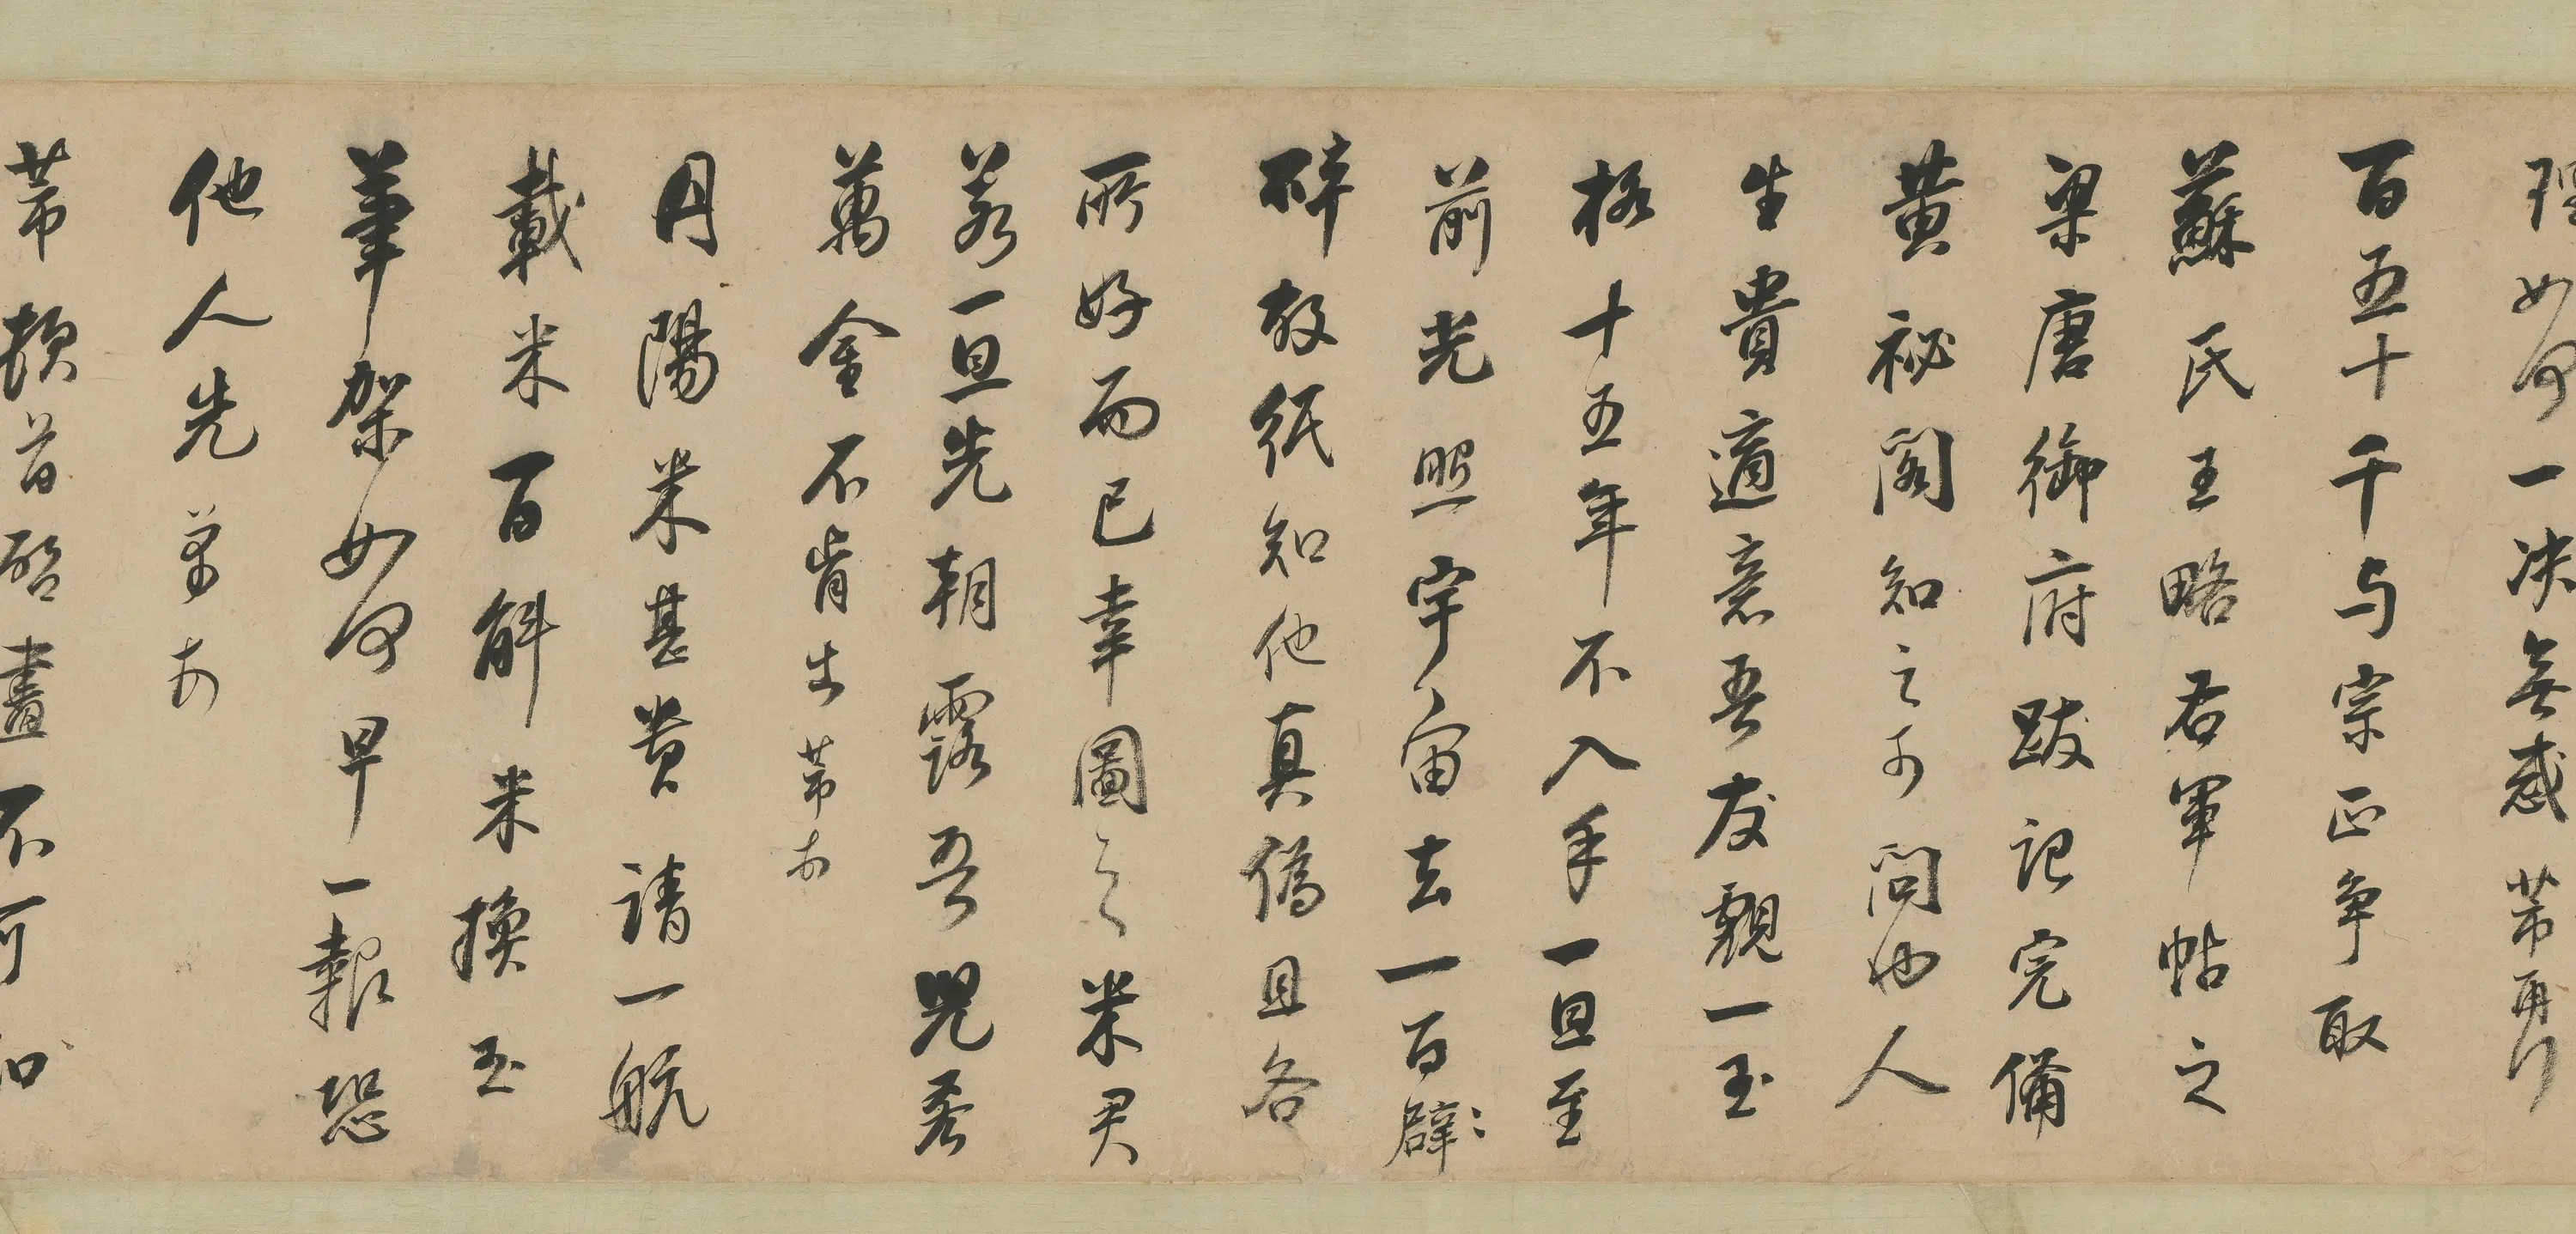 理如何一决無惑芾再行
百五十千与宗正争取
蘇氏王略右軍帖之
梁唐御府跋记完備
黄秘阁知之可问也人
生貴適意吾友覩一玉
格十五年不入手一旦至
前光照宇宙去一百碎
碎故纸知他真偽且各
所好而已幸圖之米君
若一旦先朝露吾兒吝
萬金不肯出芾
丹陽米甚贵請一航
載米百斛来換玉
筆架如何早一報恐
他人先
芾頓首啓畫不可知